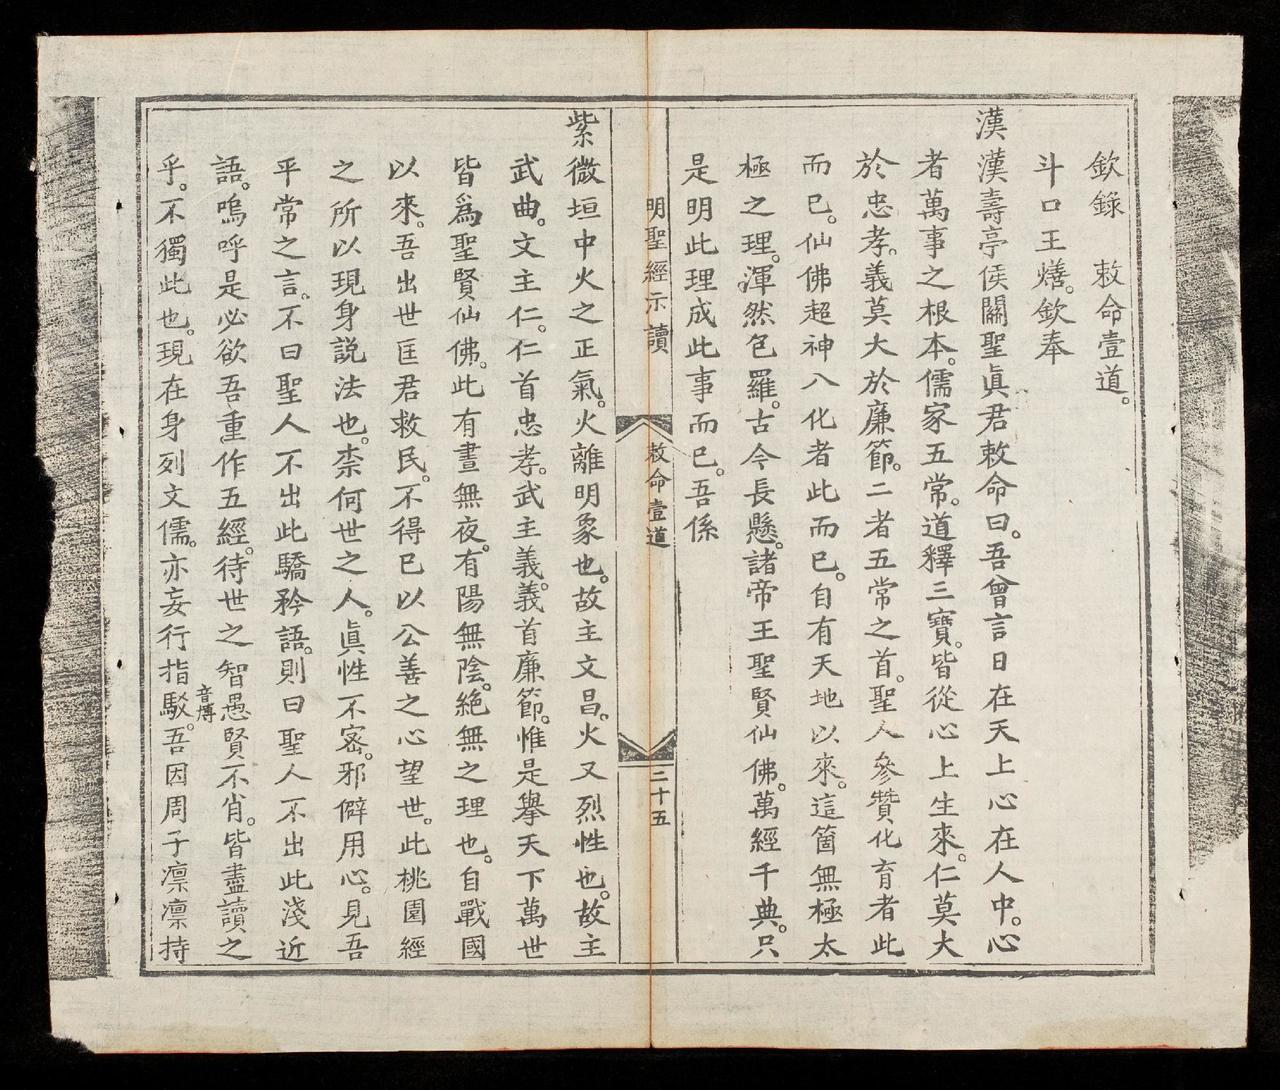 欽錄　敕命壹道。
斗口王燌。欽奉
漢漢壽亭侯關聖眞君敕命曰。吾曾言日在天上心在人中。心
者萬事之根本。儒家五常。道釋三寶。皆從心上生來。仁莫大
於忠孝。義莫大於廉節。二者五常之首。聖人參贊化育者此
而已。仙佛超神入化者此而已。自有天地以來。這箇無極太
極之理。渾然包羅。古今長懸。諸帝王聖賢仙佛。萬經千典。只
是明此理成此事而已。吾係
明聖經示讀　敕命壹道　二十五
紫微垣中火之正氣。火離明象也。故主文昌。火又烈性也。故主
武曲。文主仁。仁首忠孝。武主義。義首廉節。惟是擧天下萬世
皆爲聖賢仙佛。此有晝無夜。有陽無陰。絕無之理也。自戰國
以來。吾出世匡君救民。不得已以公善之心望世。此桃園經
之所以現身説法也。柰何世之人。眞性不密。邪僻用心。見吾
平常之言。不曰聖人不出此驕矜語。則曰聖人不出此淺近
語。嗚呼是必欲吾重作五經。待世之智愚賢不肖。皆盡讀之
乎。不獨此也。現在身列文儒。亦妄行指駁音博。吾因周子凛凛持